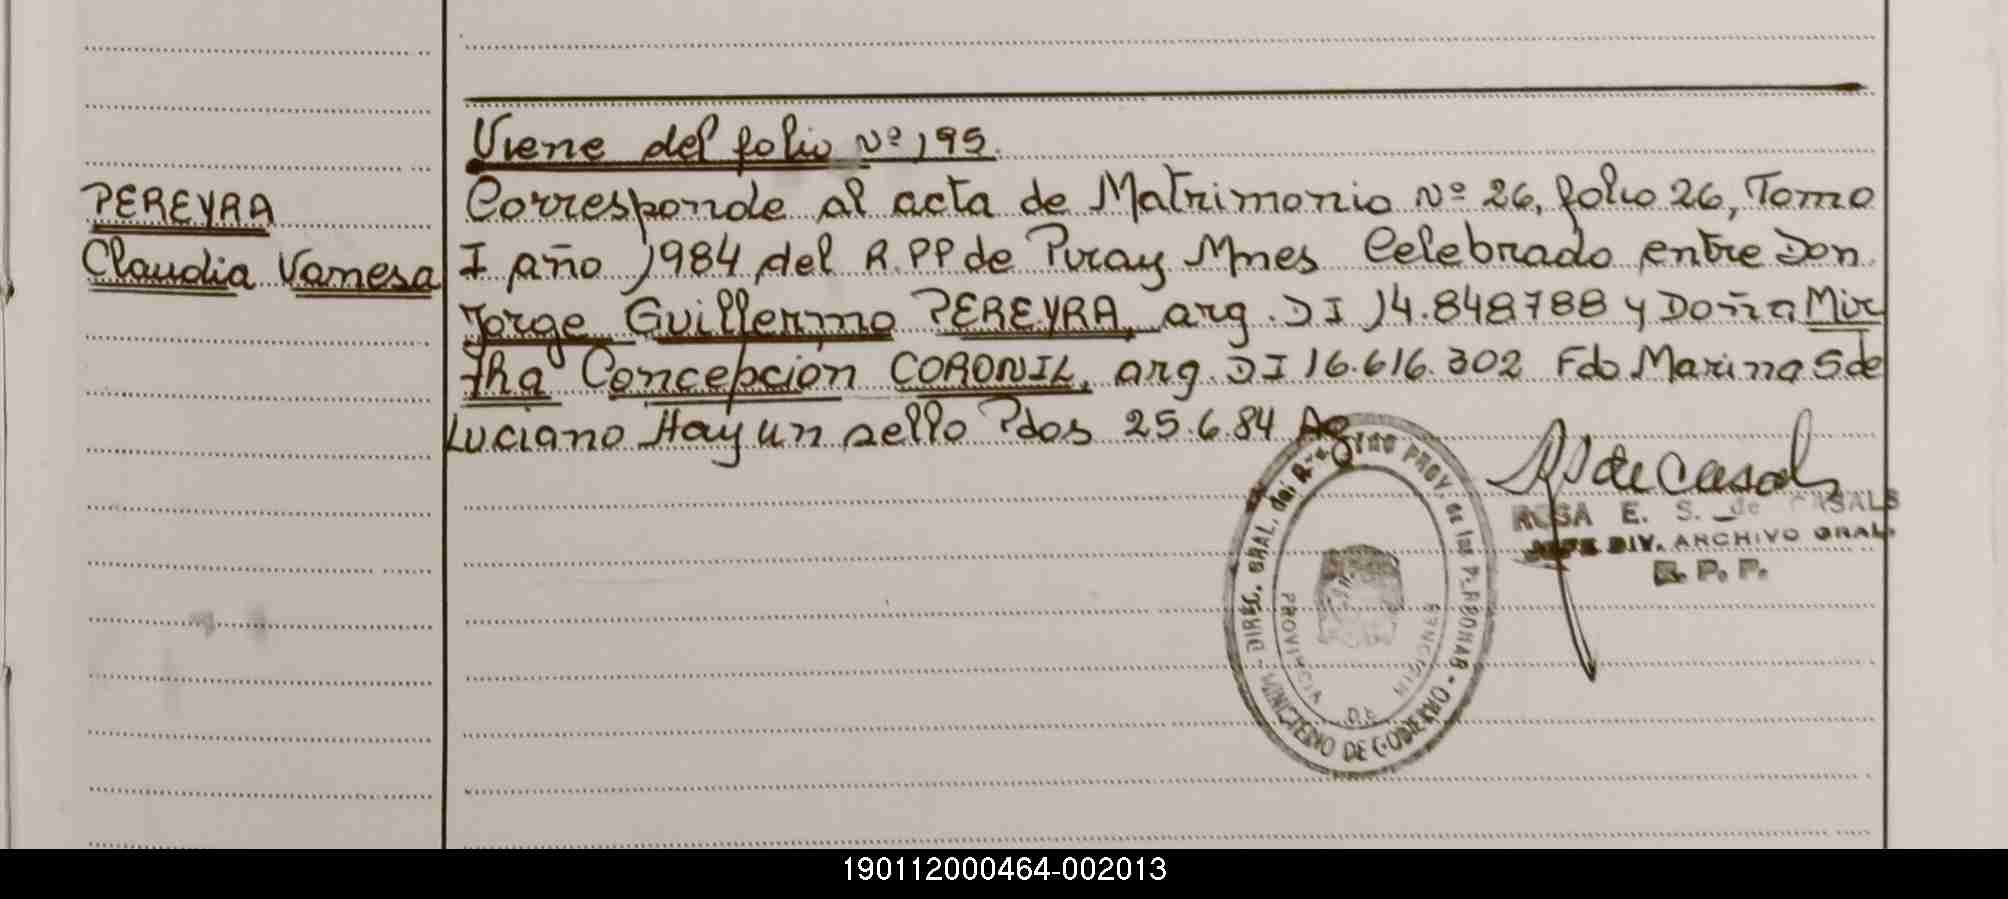 Viene del folio Nº 195.
PEREYRA
Claudia Vanesa
Corresponde al acta de Matrimonio Nº 26, folio 26, Tomo
I año 1984 del R.PP de Puray Mnes Celebrado entre Don
Jorge Guillermo PEREYRA, arg. DI 14.848788 y Doña Mir
tha Concepción CORONIL, arg. DI 16.616.302 Fdo Marina S de
Luciano Hay un sello Pdos 25.6.84
RS de Casals
ROSA E. S. de CASALS
JEFE DIV. ARCHIVO GRAL.
R. P. P.
DIREC. GRAL. del PROV. de las PERSONAS - MINISTERIO DE GOBIERNO
PROVINCIA DE MISIONES
190112000464-002013